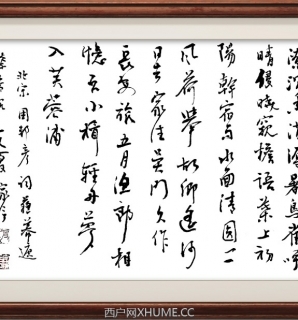 沉香消溽暑鸟雀呼
晴侵晓窥檐语叶上初
陽幹宿雨水面清圆一一
风荷举故乡遥何
日去家住吴门久作
長安旅五月渔郎相
憶否小楫轻舟梦
入芙蓉浦
北宋周邦彦词苏幕遮
西户网XHUME.CC